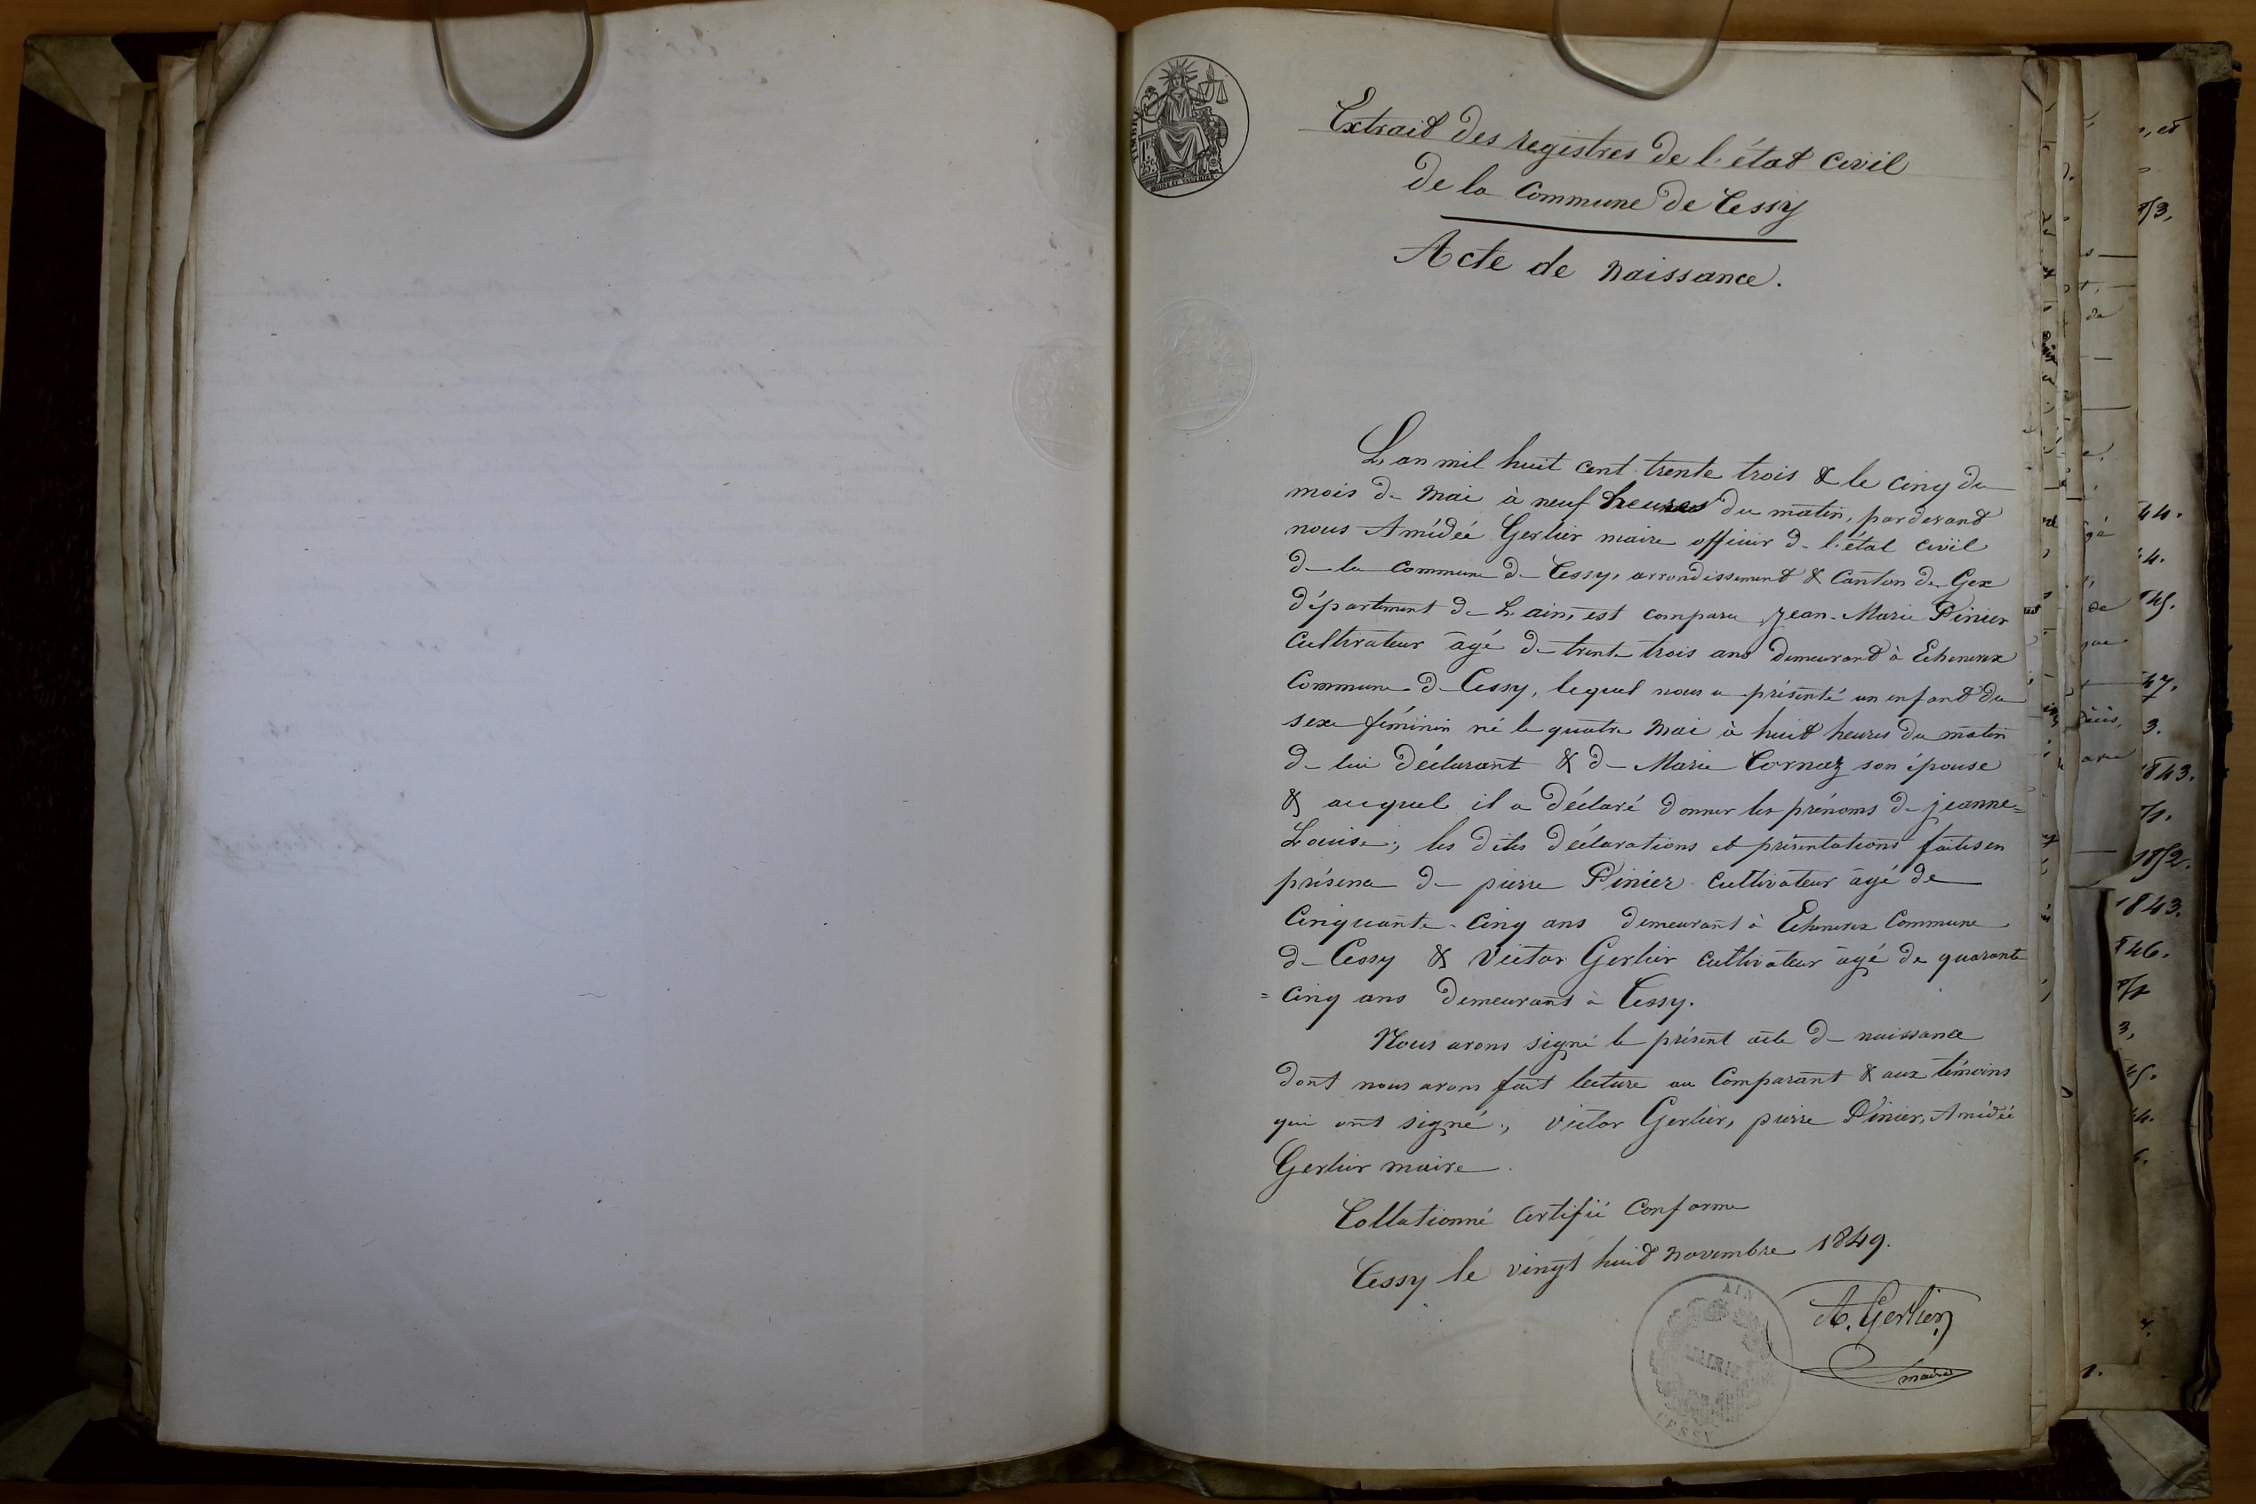 Extrait des registres de l'état civil
de la Commune de Cessy
Acte de naissance.
L'an mil huit cent trente trois & le cinq du
mois de mai à neuf heures du matin, pardevant
nous Amédée Gerlier maire officier de l'état civil
de la commune de Cessy, arrondissement & Canton de Gex
département de L'ain, est comparu Jean-Marie Pinier
Cultivateur âgé de trente trois ans demeurant à Echenevex
Commune de Cessy, lequel nous a présenté un enfant du
sexe féminin né le quatre mai à huit heures du matin
de lui déclarant & de Marie Cornaz son épouse
& auquel il a déclaré donner les prénoms de jeanne=
Louise; les dites déclarations et présentations faites en
présence de pierre Pinier cultivateur âgé de
Cinquante-cinq ans demeurant à Echenevex Commune
de Cessy & Victor Gerlier cultivateur âgé de quarante
=cinq ans demeurant à Cessy.
Nous avons signé le présent acte de naissance
dont nous avons fait lecture au Comparant & aux témoins
qui ont signé; victor Gerlier, pierre Pinier, Amédée
Gerlier maire.
Collationné Certifié Conforme
Cessy le vingt huit novembre 1849.
A. Gerlier
maire
AIN
MAIRIE
CESSY